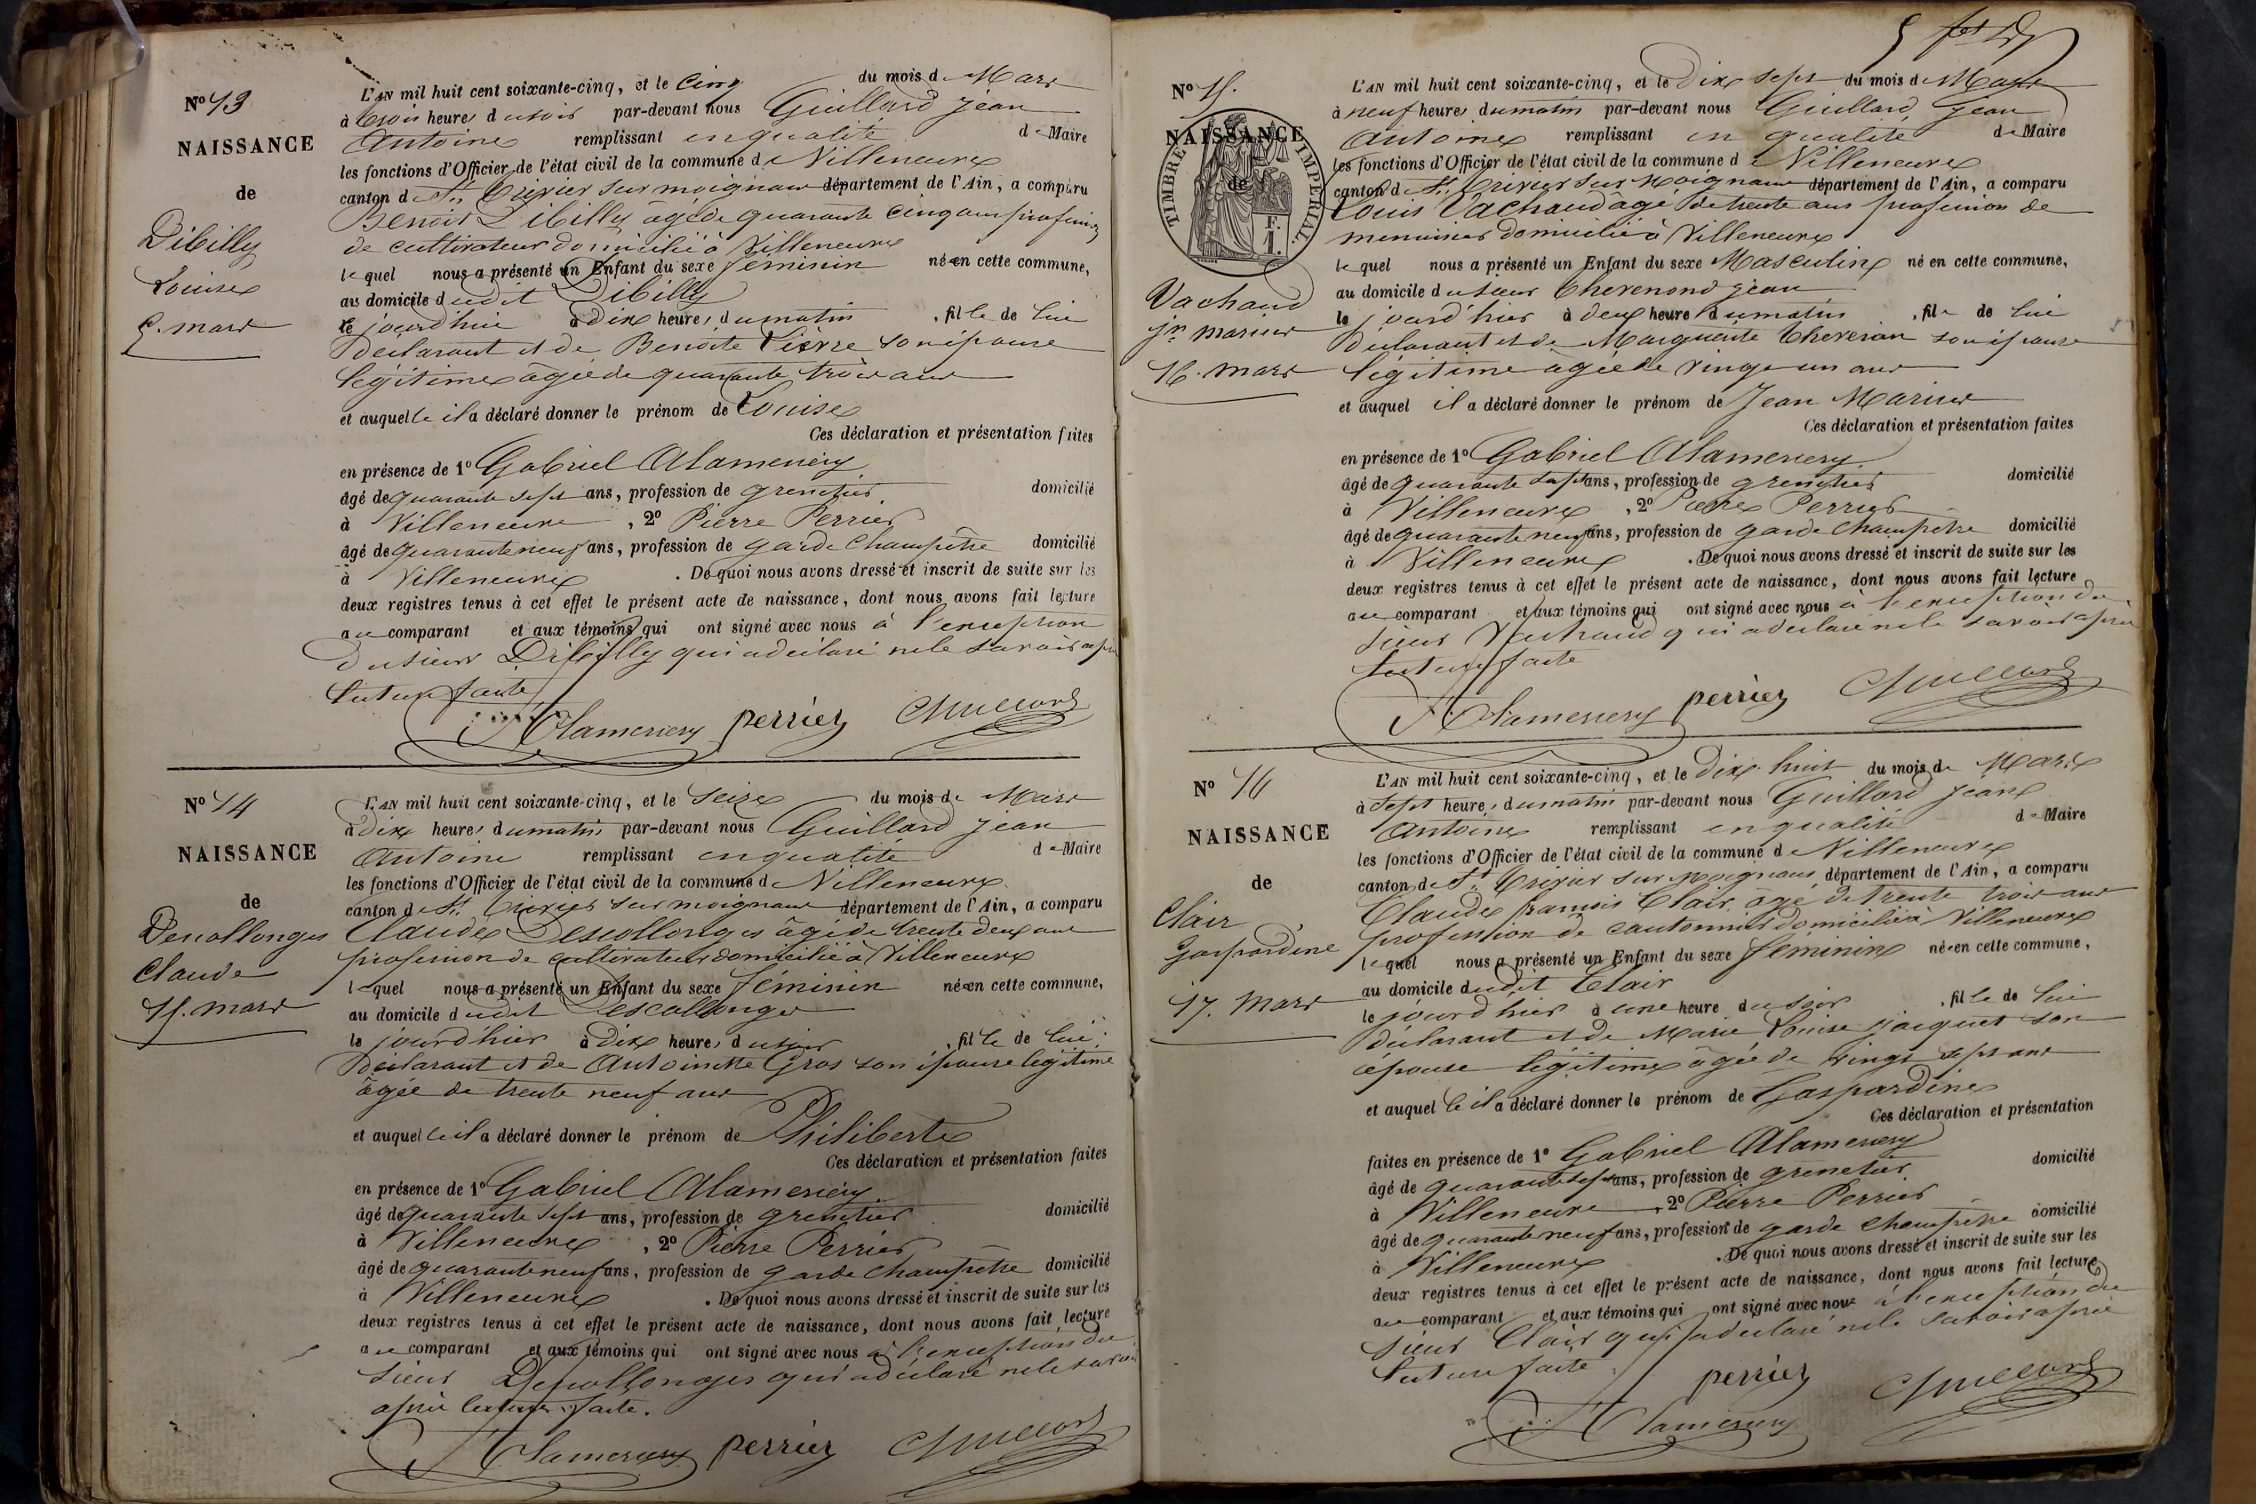 No 13
NAISSANCE
de
Dibilly
Louise
5. mars
L'AN mil huit cent soixante-cinq, et le Cinq du mois de Mars
à trois heures du soir par-devant nous Guillard Jean
Antoine remplissant en qualité de Maire
les fonctions d'Officier de l'état civil de la commune de Villeneuve
canton de St. Trivier sur moignans département de l'Ain, a comparu
Benoit Dibilly âgé de quarante cinq ans profession
de cultivateur domicilié à Villeneuve
lequel nous a présenté un Enfant du sexe féminin né en cette commune,
au domicile dudit Dibilly
le jourd'hui à dix heures du matin, fille de lui
déclarant et de Benoite Lièvre son épouse
légitime âgée de quarante trois ans
et auquelle il a déclaré donner le prénom de Louise
Ces déclaration et présentation faites
en présence de 1º Gabriel Alamercery
âgé de quarante sept ans, profession de grenetier domicilié
à Villeneuve, 2º Pierre Perrier
âgé de quarante neuf ans, profession de garde Champêtre domicilié
à Villeneuve. De quoi nous avons dressé et inscrit de suite sur les
deux registres tenus à cet effet le présent acte de naissance, dont nous avons fait lecture
au comparant et aux témoins qui ont signé avec nous à l'exception
du sieur Dibilly qui a déclaré ne le savoir après
lecture faite
Alamercery perrier Guillard
No 14
NAISSANCE
de
Descollonges
Claude
15. mars
L'AN mil huit cent soixante-cinq, et le Seize du mois de Mars
à Dix heures du matin par-devant nous Guillard Jean
Antoine remplissant en qualité de Maire
les fonctions d'Officier de l'état civil de la commune de Villeneuve
canton de St. Trivier sur moignans département de l'Ain, a comparu
Claude Descollonges âgé de trente deux ans
profession de cultivateur domicilié à Villeneuve
lequel nous a présenté un Enfant du sexe féminin né en cette commune,
au domicile dudit Descollonges
le jourd'hier à Dix heures du soir, fille de lui
déclarant et de Antoinette Gros son épouse légitime
âgée de trente neuf ans
et auquelle il a déclaré donner le prénom de Philiberte
Ces déclaration et présentation faites
en présence de 1º Gabriel Alamercery
âgé de quarante sept ans, profession de grenetier domicilié
à Villeneuve, 2º Pierre Perrier
âgé de quarante neuf ans, profession de garde Champêtre domicilié
à Villeneuve. De quoi nous avons dressé et inscrit de suite sur les
deux registres tenus à cet effet le présent acte de naissance, dont nous avons fait lecture
au comparant et aux témoins qui ont signé avec nous à l'exception du
sieur Descollonges qui a déclaré ne le savoir
après lecture faite.
Alamercery perrier Guillard
No 15.
NAISSANCE
de
TIMBRE IMPERIAL.
F. 1.
Vachaud
jn. marius
16. mars
L'AN mil huit cent soixante-cinq, et le Dix sept du mois de Mars
à neuf heures du matin par-devant nous Guillard Jean
Antoine remplissant en qualité de Maire
les fonctions d'Officier de l'état civil de la commune de Villeneuve
canton de St. Trivier sur Moignans département de l'Ain, a comparu
Louis Vachaud âgé de trente ans profession de
menuisier domicilié à Villeneuve
lequel nous a présenté un Enfant du sexe Masculin né en cette commune,
au domicile du sieur Chevenond Jean
le jourd'hier à deux heure du matin, fils de lui
déclarant et de Marguerite Thevenon son épouse
légitime âgée de vingt un ans
et auquel il a déclaré donner le prénom de Jean Marius
Ces déclaration et présentation faites
en présence de 1º Gabriel Alamercery
âgé de quarante sept ans, profession de grenetier domicilié
à Villeneuve, 2º Pierre Perrier
âgé de quarante neuf ans, profession de garde Champêtre domicilié
à Villeneuve. De quoi nous avons dressé et inscrit de suite sur les
deux registres tenus à cet effet le présent acte de naissance, dont nous avons fait lecture
au comparant et aux témoins qui ont signé avec nous à l'exception du
sieur Vachaud qui a déclaré ne le savoir après
lecture faite
Alamercery perrier Guillard
No 16
NAISSANCE
de
Clair
Gaspardine
17. Mars
L'AN mil huit cent soixante-cinq, et le Dix huit du mois de Mars
à Sept heures du matin par-devant nous Guillard Jean
Antoine remplissant en qualité de Maire
les fonctions d'Officier de l'état civil de la commune de Villeneuve
canton de St. Trivier sur moignans département de l'Ain, a comparu
Claude françois Clair âgé de trente trois ans
profession de cantonnier domicilié à Villeneuve
lequel nous a présenté un Enfant du sexe féminin né en cette commune,
au domicile dudit Clair
le jourd'hier à une heure du soir, fille de lui
déclarant et de Marie Louise Jacquet son
épouse légitime âgée de vingt sept ans
et auquelle il a déclaré donner le prénom de Gaspardine
Ces déclaration et présentation
faites en présence de 1º Gabriel Alamercery
âgé de quarante sept ans, profession de grenetier domicilié
à Villeneuve, 2º Pierre Perrier
âgé de quarante neuf ans, profession de garde Champêtre domicilié
à Villeneuve. De quoi nous avons dressé et inscrit de suite sur les
deux registres tenus à cet effet le présent acte de naissance, dont nous avons fait lecture
au comparant et aux témoins qui ont signé avec nous à l'exception du
sieur Clair qui a déclaré ne le savoir après
lecture faite
Alamercery perrier Guillard